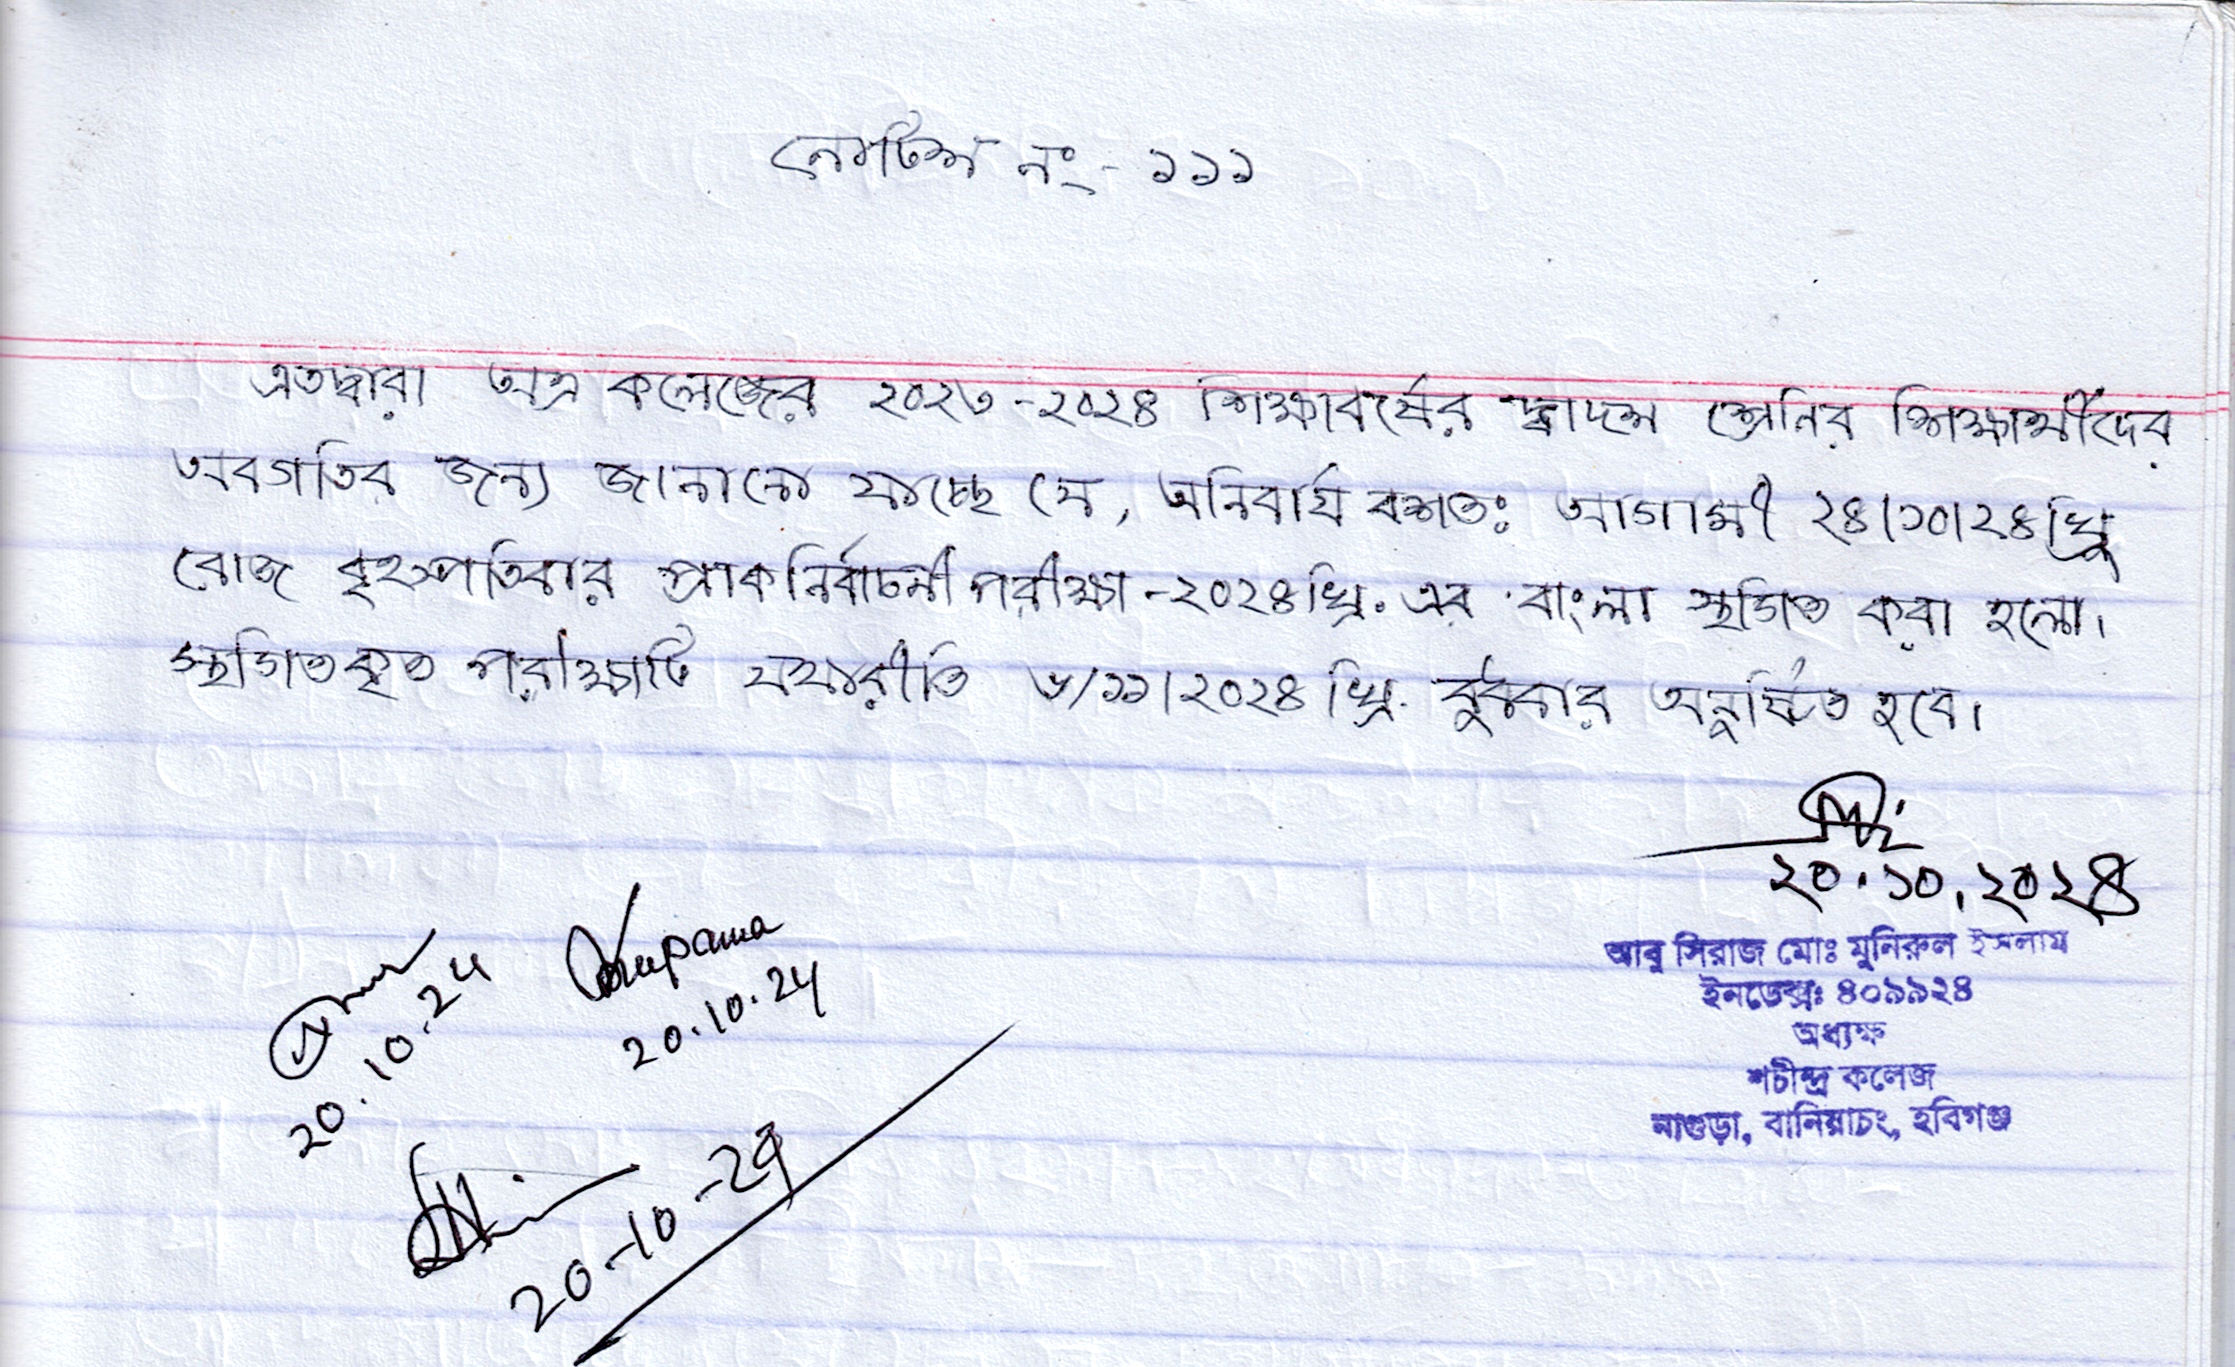 নোটিশ নং - ১১১
এতদ্বারা অত্র কলেজের ২০২৩-২০২৪ শিক্ষাবর্ষের দ্বাদশ শ্রেনির শিক্ষার্থীদের
অবগতির জন্য জানানো যাচ্ছে যে, অনিবার্য বশতঃ আগামী ২৪/১০/২৪ খ্রি
রোজ বৃহস্পতিবার প্রাকনির্বাচনী পরীক্ষা -২০২৪ খ্রি. এর বাংলা স্থগিত করা হলো।
স্থগিতকৃত পরীক্ষাটি যথারীতি ৬/১১/২০২৪ খ্রি. বুধবার অনুষ্ঠিত হবে।
২০.১০.২০২৪
আবু সিরাজ মোঃ মুনিরুল ইসলাম
ইনডেক্সঃ ৪০৯৯২৪
অধ্যক্ষ
শচীন্দ্র কলেজ
নাগুড়া, বানিয়াচং, হবিগঞ্জ
20.10.24
20.10.24
20-10-24